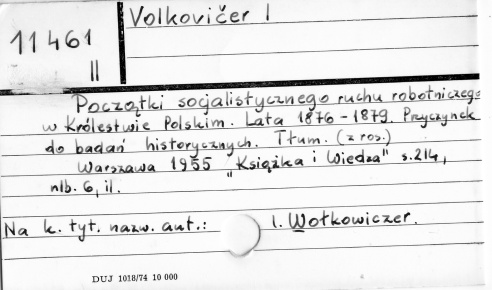 Volkovičer I
11461
II
Początki socjalistycznego ruchu robotniczego
w Królestwie Polskim. Lata 1876-1879. Przyczynek
do badań historycznych. Tłum. (z ros.)
Warszawa 1955 "Książka i Wiedza" s.214,
nlb. 6, il.
Na k. tyt. nazw. aut.: I. Wołkowiczer.
DUJ 1018/74 10 000